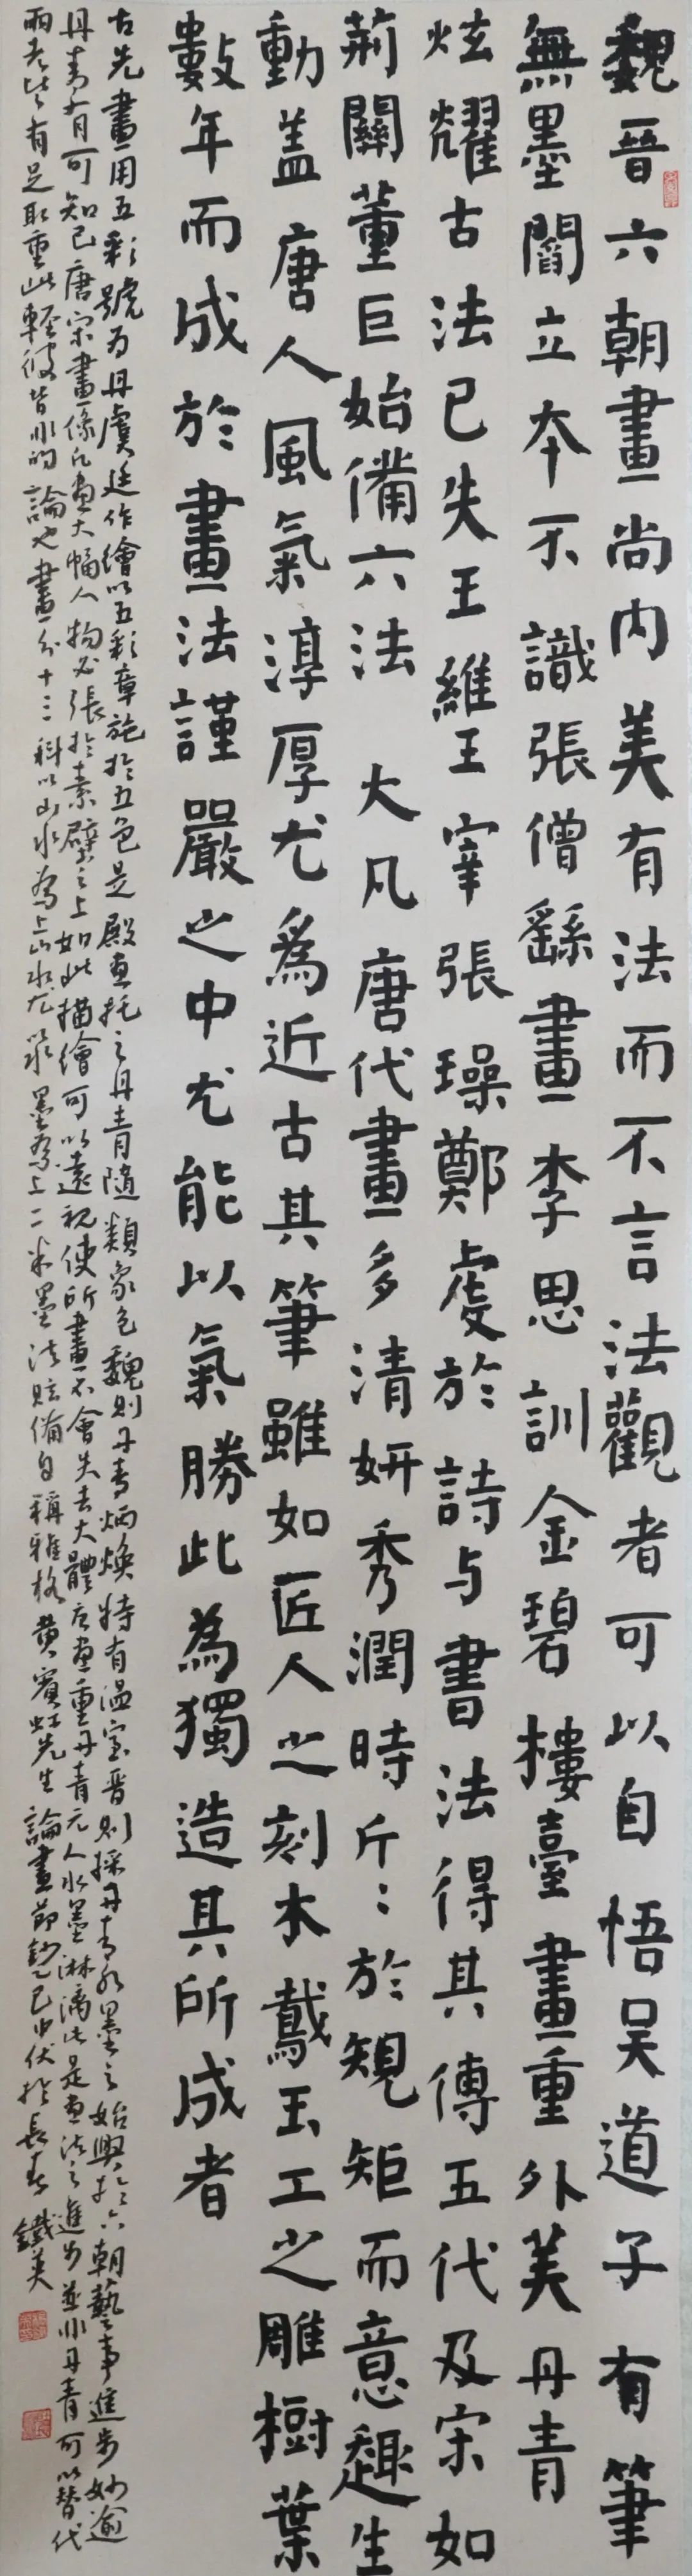 魏晉六朝畫尚内美有法而不言法觀者可以自悟吴道子有筆
無墨閻立本不識張僧繇畫李思訓金碧樓臺畫重外美丹青
炫耀古法已失王維王宰張璪鄭虔於詩与書法得其傳五代及宋如
荊關董巨始備六法大凡唐代畫多清妍秀潤時斤〻於規矩而意趣生
動盖唐人風氣淳厚尤爲近古其筆雖如匠人之刻木鷰玉工之雕樹葉
數年而成於畫法謹嚴之中尤能以氣勝此為獨造其所成者
古先畫用五彩號为丹虞廷作繪以五彩章施於五色是殿畫托之丹青隨類象色魏则丹青炳焕特有温室晋则採丹青水墨之始興於六朝藝事進步妙逾
丹青有可知已唐宋畫像凡畫大幅人物必張於素壁之上如此描繪可以遠視使所畫不會失去大體唐畫重丹青元人水墨淋漓此是畫法之進步並非丹青可以替代
兩者皆有足取重此輕彼皆非的論也畫分十三科以山水為上山水尤以水墨為上二米墨法賅備自稱雅格黄賓虹先生論畫節鈔己中伏於長春鐵美